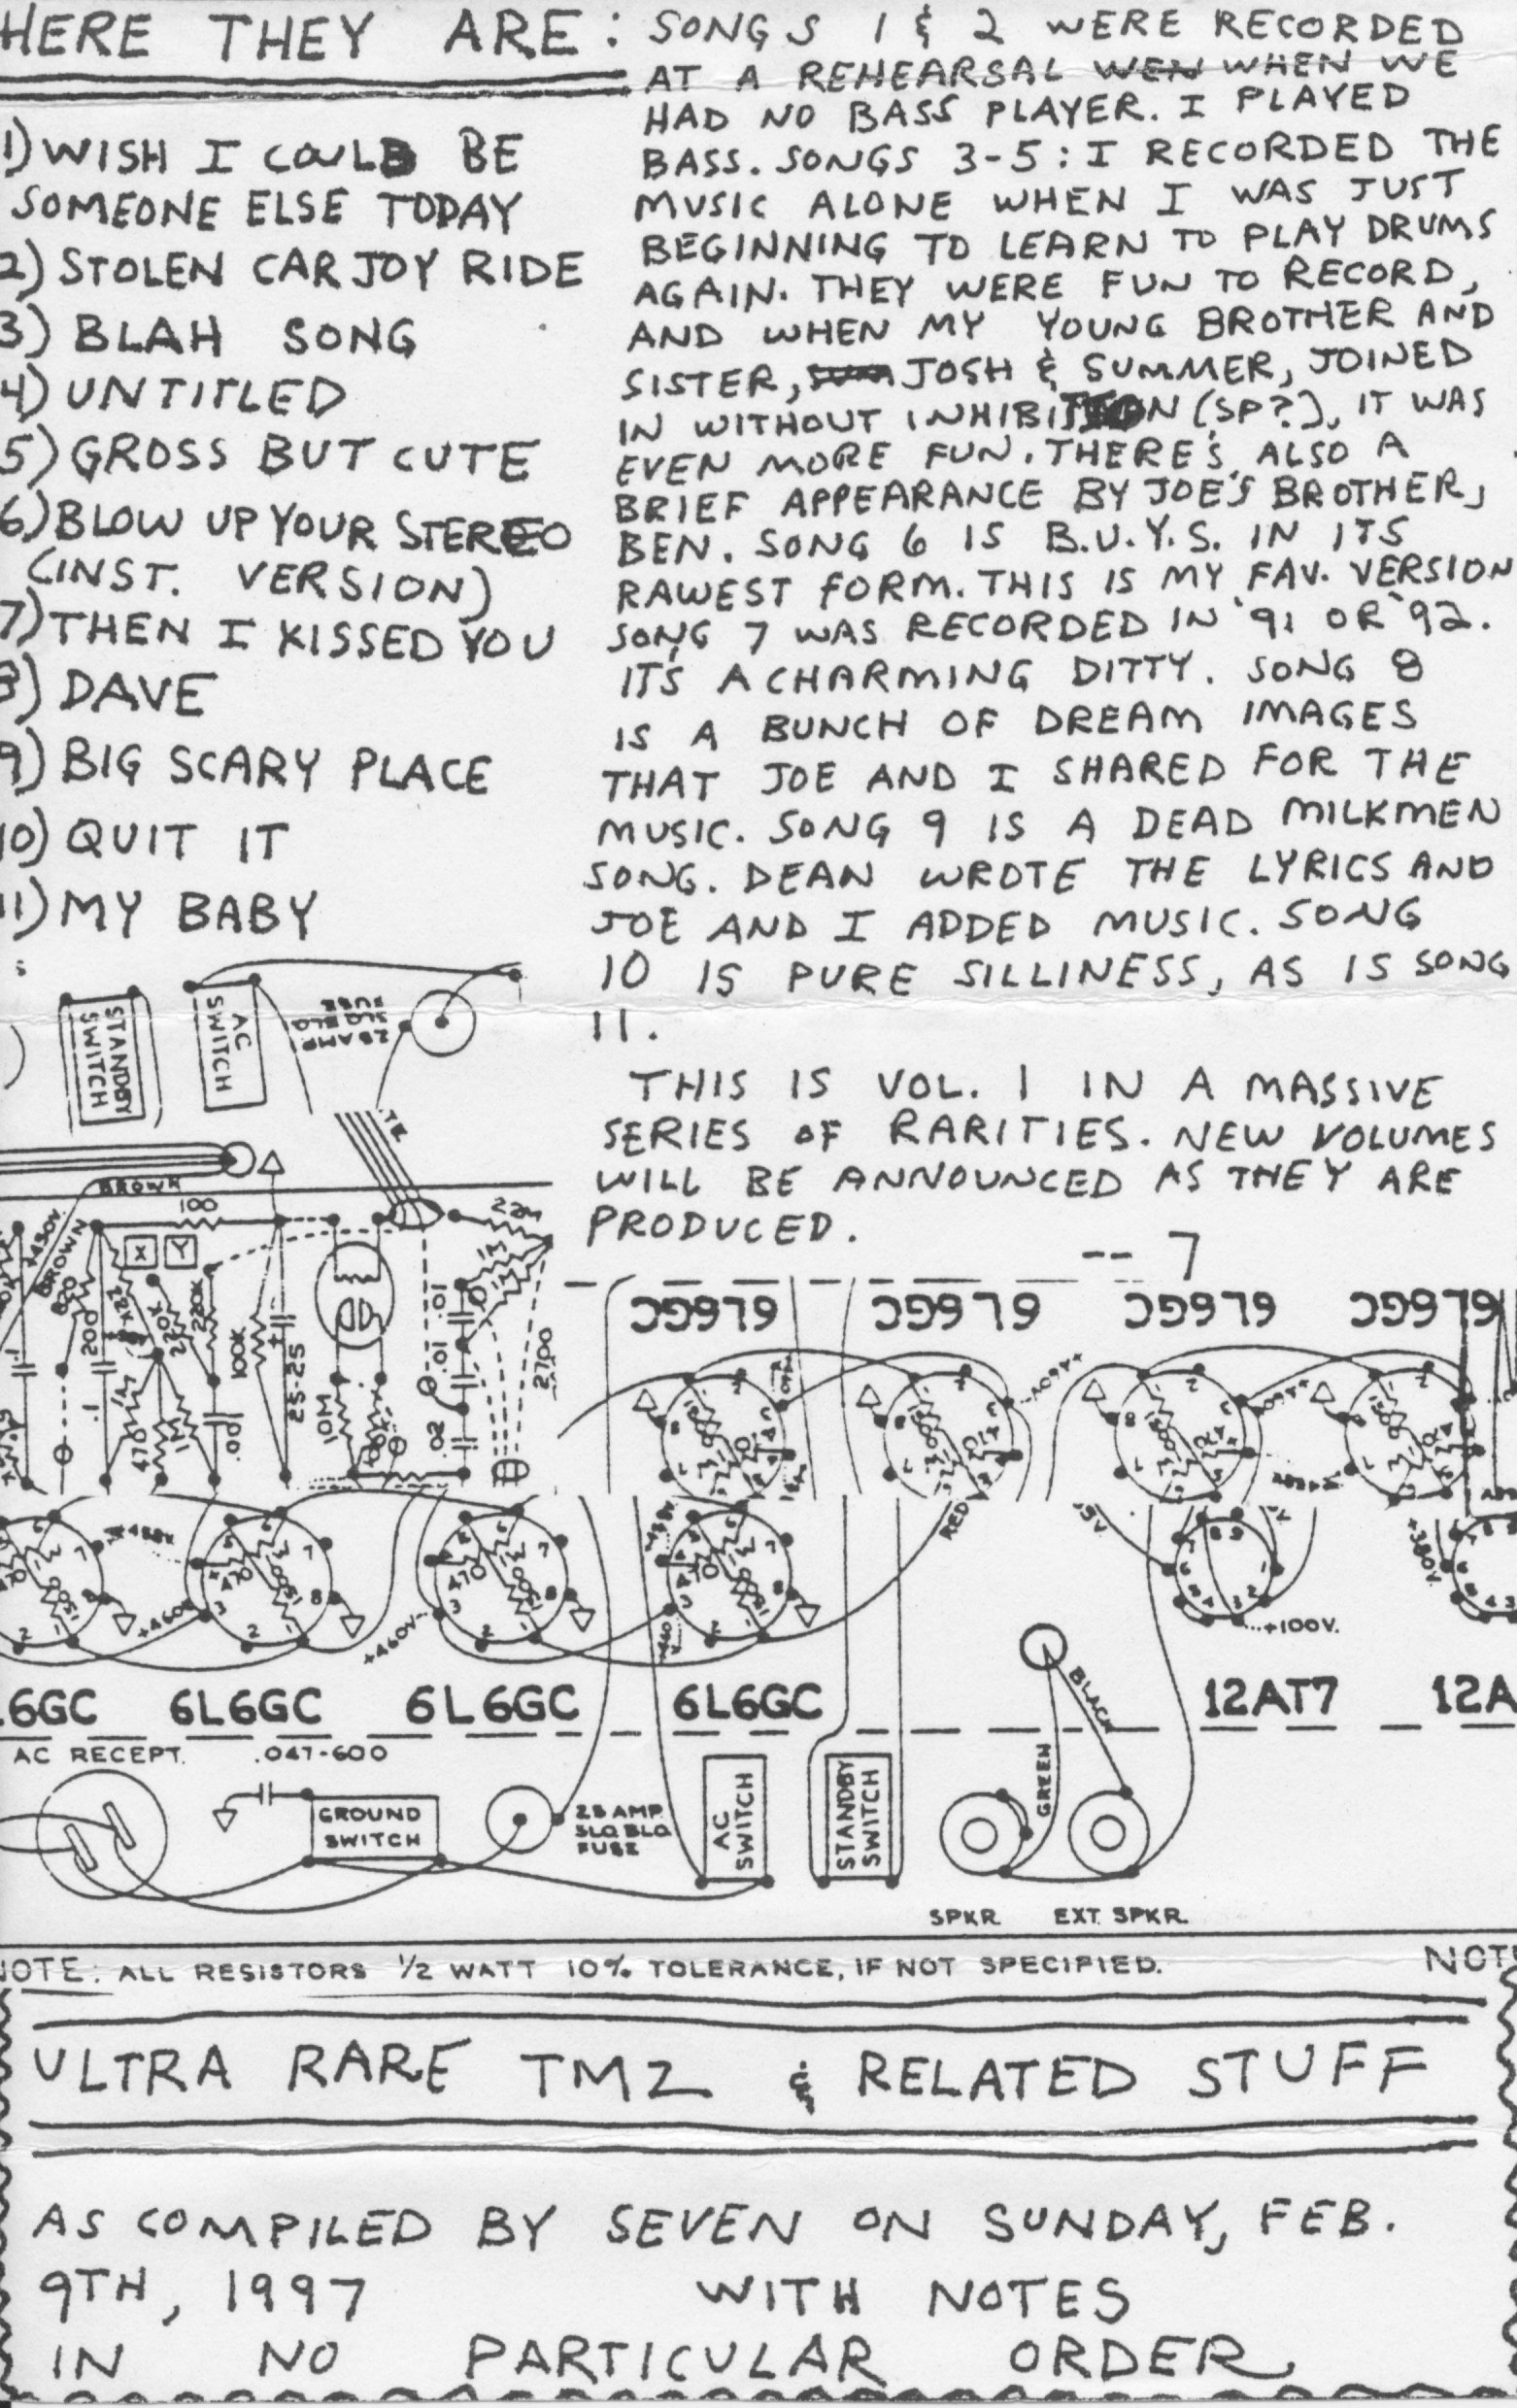 HERE THEY ARE:
1) WISH I COULD BE
SOMEONE ELSE TODAY
2) STOLEN CAR JOY RIDE
3) BLAH SONG
4) UNTITLED
5) GROSS BUT CUTE
6) BLOW UP YOUR STEREO
(INST. VERSION)
7) THEN I KISSED YOU
8) DAVE
9) BIG SCARY PLACE
10) QUIT IT
11) MY BABY
SONGS 1 & 2 WERE RECORDED
AT A REHEARSAL WEN WHEN WE
HAD NO BASS PLAYER. I PLAYED
BASS. SONGS 3-5: I RECORDED THE
MUSIC ALONE WHEN I WAS JUST
BEGINNING TO LEARN TO PLAY DRUMS
AGAIN. THEY WERE FUN TO RECORD,
AND WHEN MY YOUNG BROTHER AND
SISTER, SUM JOSH & SUMMER, JOINED
IN WITHOUT INHIBITION (SP?), IT WAS
EVEN MORE FUN. THERE'S ALSO A
BRIEF APPEARANCE BY JOE'S BROTHER,
BEN. SONG 6 IS B.U.Y.S. IN ITS
RAWEST FORM. THIS IS MY FAV. VERSION
SONG 7 WAS RECORDED IN '91 OR '92.
IT'S A CHARMING DITTY. SONG 8
IS A BUNCH OF DREAM IMAGES
THAT JOE AND I SHARED FOR THE
MUSIC. SONG 9 IS A DEAD MILKMEN
SONG. DEAN WROTE THE LYRICS AND
JOE AND I ADDED MUSIC. SONG
10 IS PURE SILLINESS, AS IS SONG
11.
THIS IS VOL. 1 IN A MASSIVE
SERIES OF RARITIES. NEW VOLUMES
WILL BE ANNOUNCED AS THEY ARE
PRODUCED.
-- 7
STANDBY
SWITCH
AC
SWITCH
25 AMP
SLO BLO
FUSE
BROWN
100
22M
+450V.
BROWN
820
X Y
200
220K
100K
25-25
.01
.01
2700
.1
.1
470
1M
.001
10M
.02
6L6GC 6L6GC 6L6GC 6L6GC
+460V.
RED
+460V
+460V-
+100V.
+380V.
BLACK
GREEN
6GC 6L6GC 6L6GC 6L6GC 12AT7 12A
AC RECEPT. .047-600
GROUND
SWITCH
25 AMP.
SLO BLO
FUSE
AC
SWITCH
STANDBY
SWITCH
SPKR. EXT. SPKR.
NOTE: ALL RESISTORS 1/2 WATT 10% TOLERANCE, IF NOT SPECIFIED. NOT
ULTRA RARE TMZ & RELATED STUFF
AS COMPILED BY SEVEN ON SUNDAY, FEB.
9TH, 1997 WITH NOTES
IN NO PARTICULAR ORDER